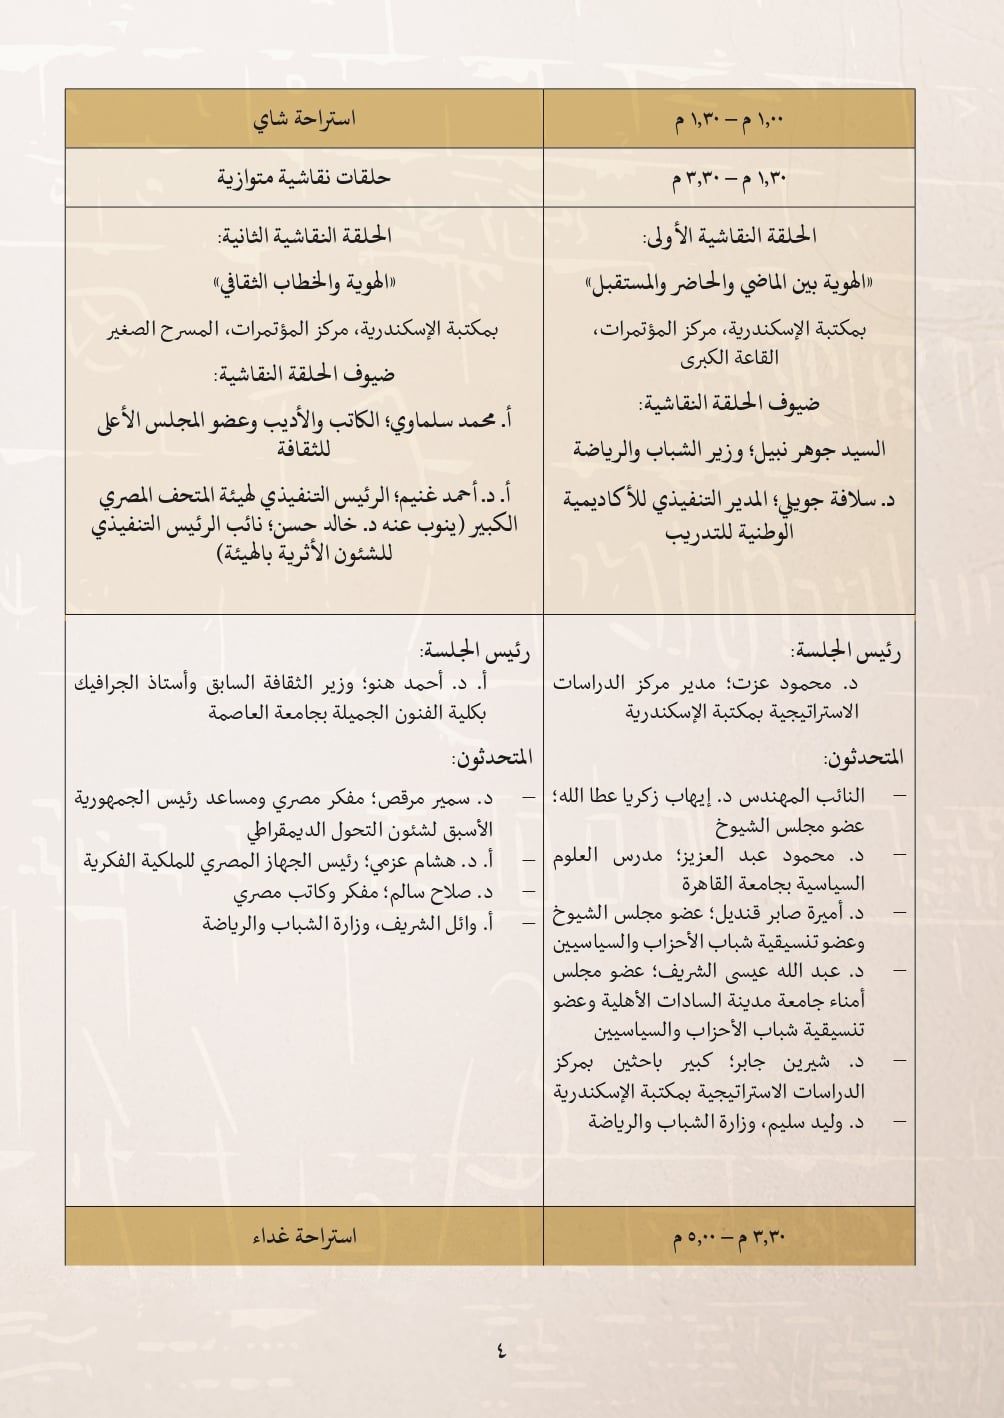 ١,٠٠ م – ١,٣٠ م
استراحة شاي
١,٣٠ م – ٣,٣٠ م
حلقات نقاشية متوازية
الحلقة النقاشية الأولى:
«الهوية بين الماضي والحاضر والمستقبل»
بمكتبة الإسكندرية، مركز المؤتمرات،
القاعة الكبرى
ضيوف الحلقة النقاشية:
السيد جوهر نبيل؛ وزير الشباب والرياضة
د. سلافة جويلي؛ المدير التنفيذي للأكاديمية
الوطنية للتدريب
الحلقة النقاشية الثانية:
«الهوية والخطاب الثقافي»
بمكتبة الإسكندرية، مركز المؤتمرات، المسرح الصغير
ضيوف الحلقة النقاشية:
أ. محمد سلماوي؛ الكاتب والأديب وعضو المجلس الأعلى
للثقافة
أ. د. أحمد غنيم؛ الرئيس التنفيذي لهيئة المتحف المصري
الكبير (ينوب عنه د. خالد حسن؛ نائب الرئيس التنفيذي
للشئون الأثرية بالهيئة)
رئيس الجلسة:
د. محمود عزت؛ مدير مركز الدراسات
الاستراتيجية بمكتبة الإسكندرية
المتحدثون:
– النائب المهندس د. إيهاب زكريا عطا الله؛
عضو مجلس الشيوخ
– د. محمود عبد العزيز؛ مدرس العلوم
السياسية بجامعة القاهرة
– د. أميرة صابر قنديل؛ عضو مجلس الشيوخ
وعضو تنسيقية شباب الأحزاب والسياسيين
– د. عبد الله عيسى الشريف؛ عضو مجلس
أمناء جامعة مدينة السادات الأهلية وعضو
تنسيقية شباب الأحزاب والسياسيين
– د. شيرين جابر؛ كبير باحثين بمركز
الدراسات الاستراتيجية بمكتبة الإسكندرية
– د. وليد سليم، وزارة الشباب والرياضة
رئيس الجلسة:
أ. د. أحمد هنو؛ وزير الثقافة السابق وأستاذ الجرافيك
بكلية الفنون الجميلة بجامعة العاصمة
المتحدثون:
– د. سمير مرقص؛ مفكر مصري ومساعد رئيس الجمهورية
الأسبق لشئون التحول الديمقراطي
– أ. د. هشام عزمي؛ رئيس الجهاز المصري للملكية الفكرية
– د. صلاح سالم؛ مفكر وكاتب مصري
– أ. وائل الشريف، وزارة الشباب والرياضة
٣,٣٠ م – ٥,٠٠ م
استراحة غداء
٤